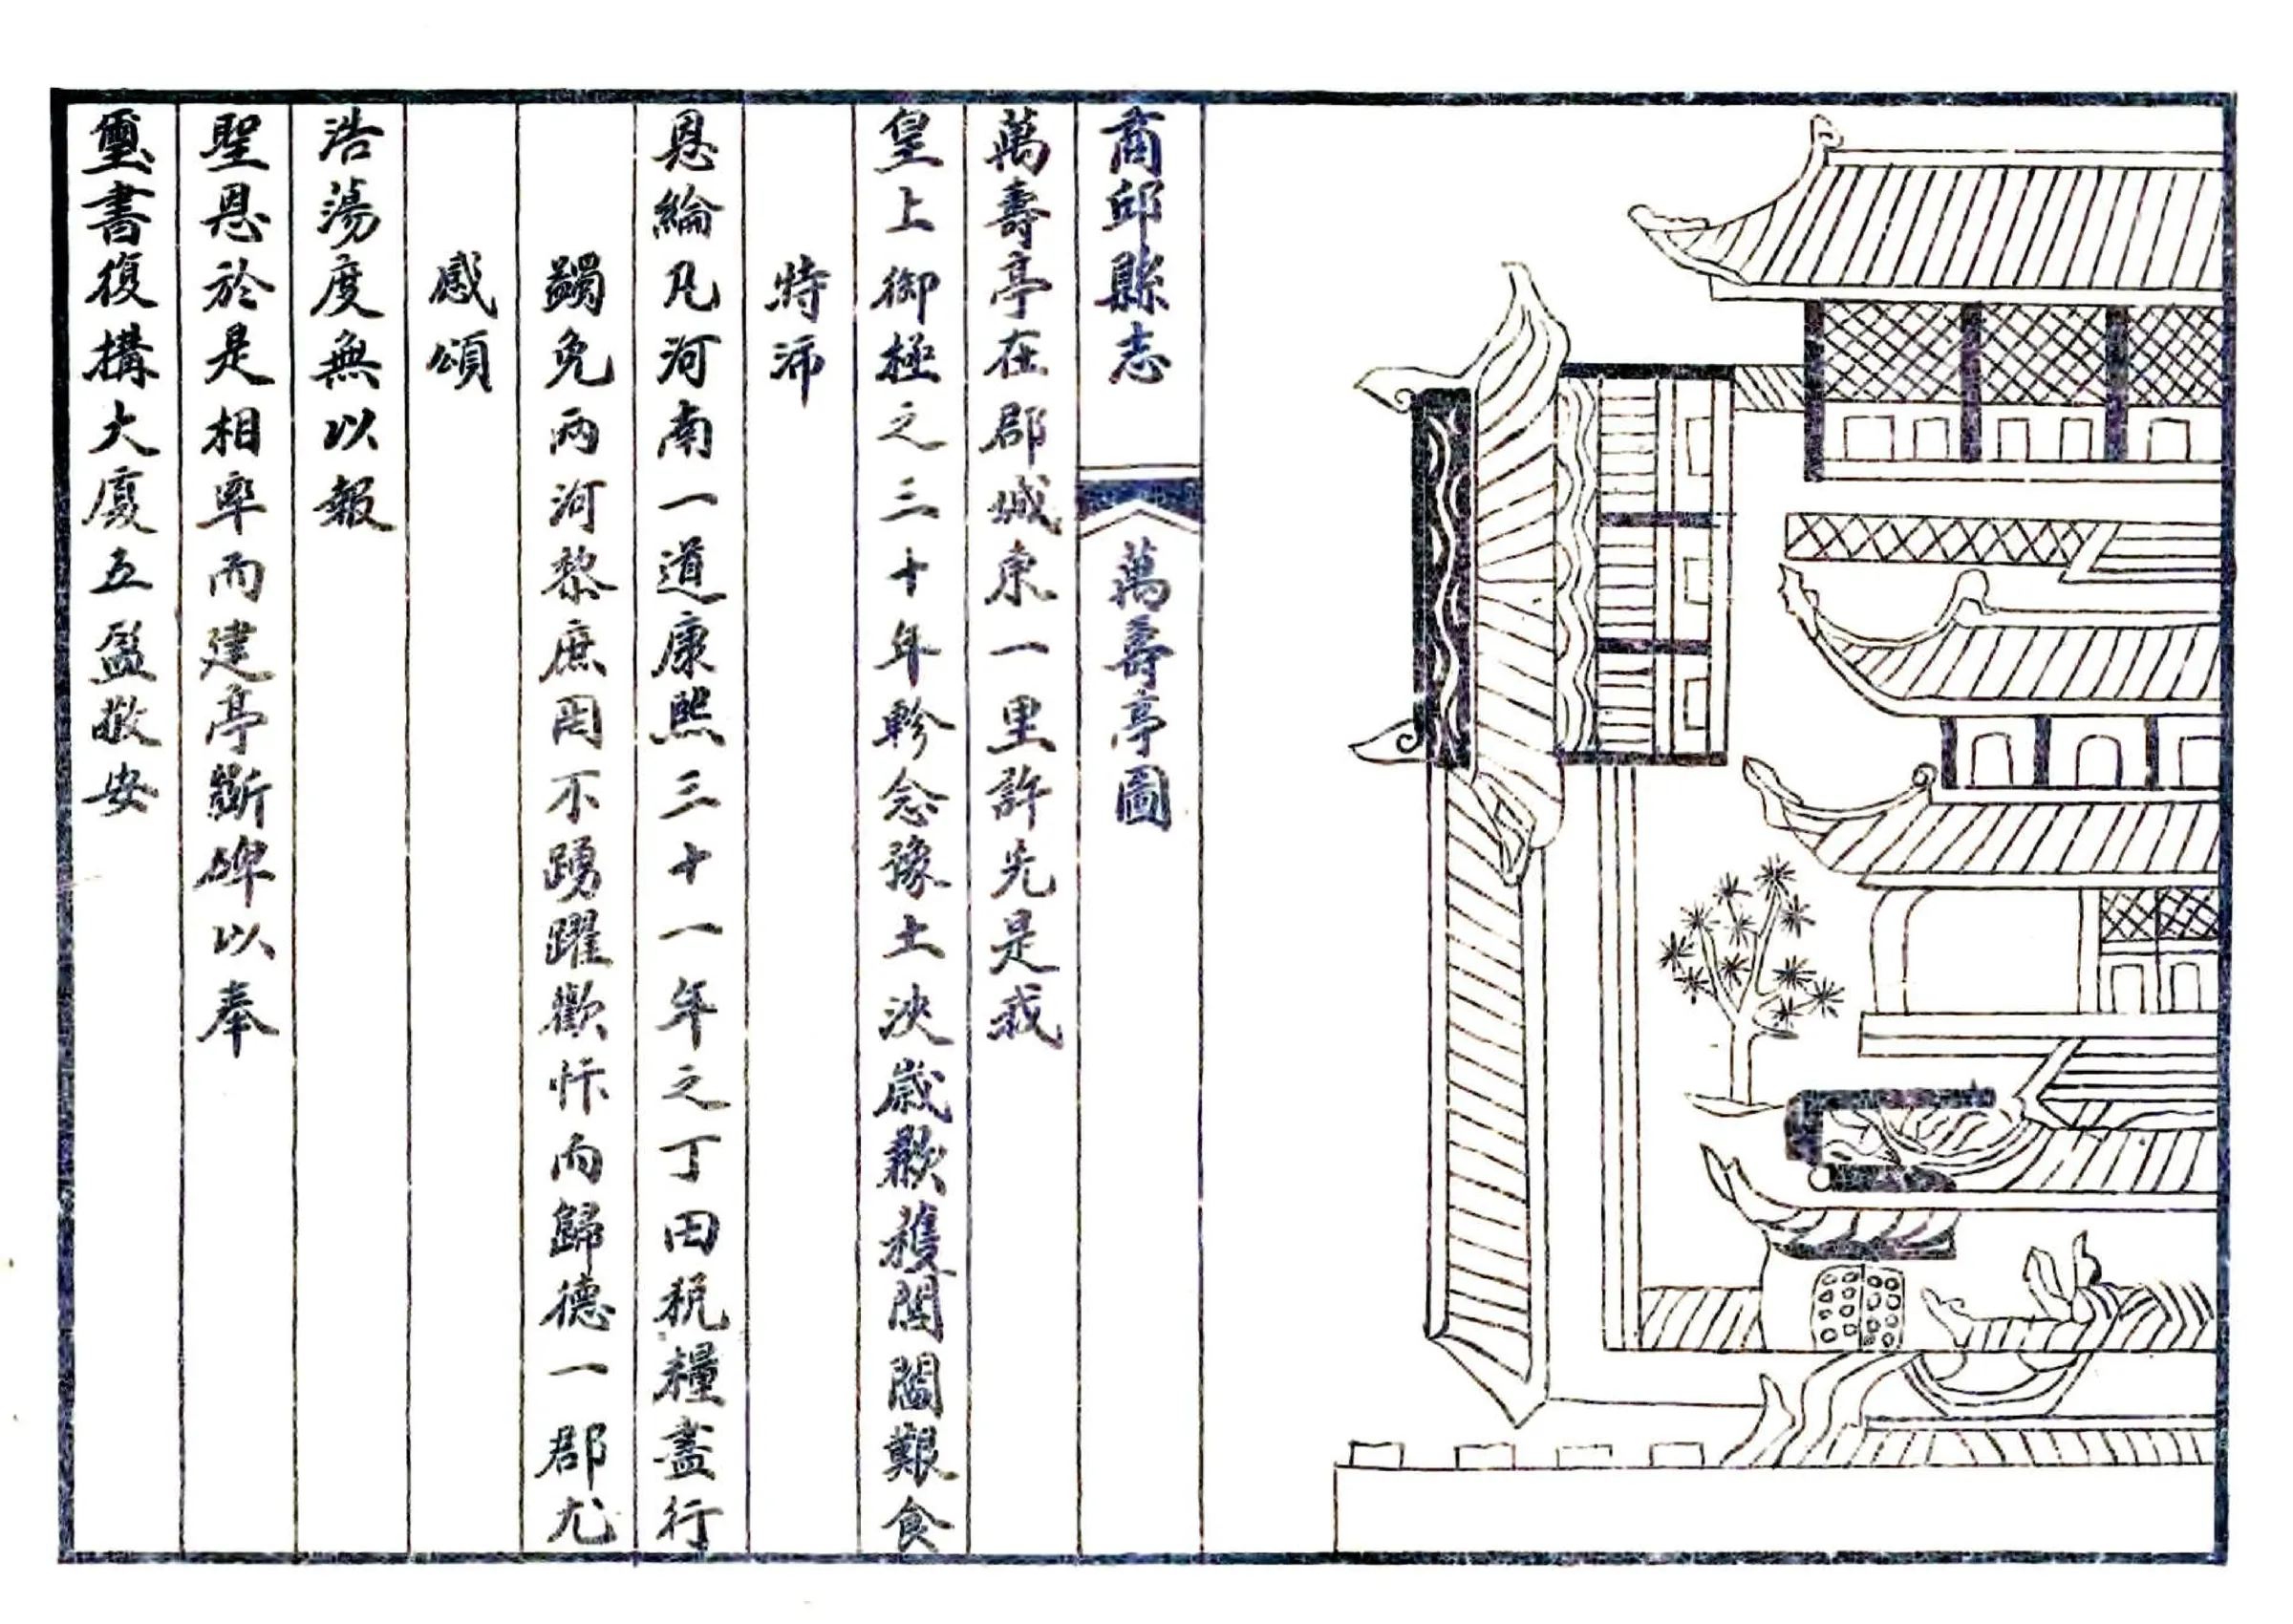 商邱縣志 萬壽亭圖
萬壽亭在郡城東一里許先是我
皇上御極之三十年軫念豫土泱歲歉穫閭閻艱食
特沛
恩綸凡河南一道康熙三十一年之丁田稅糧盡行
蠲免兩河黎庶罔不踴躍歡忭而歸德一郡尤
感頌
浩蕩度無以報
聖恩於是相率而建亭斲碑以奉
璽書復構大廈五盈敬安